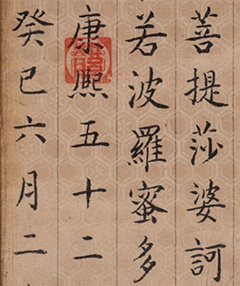 菩提莎婆訶
若波羅蜜多
康熙五十二
癸巳六月二